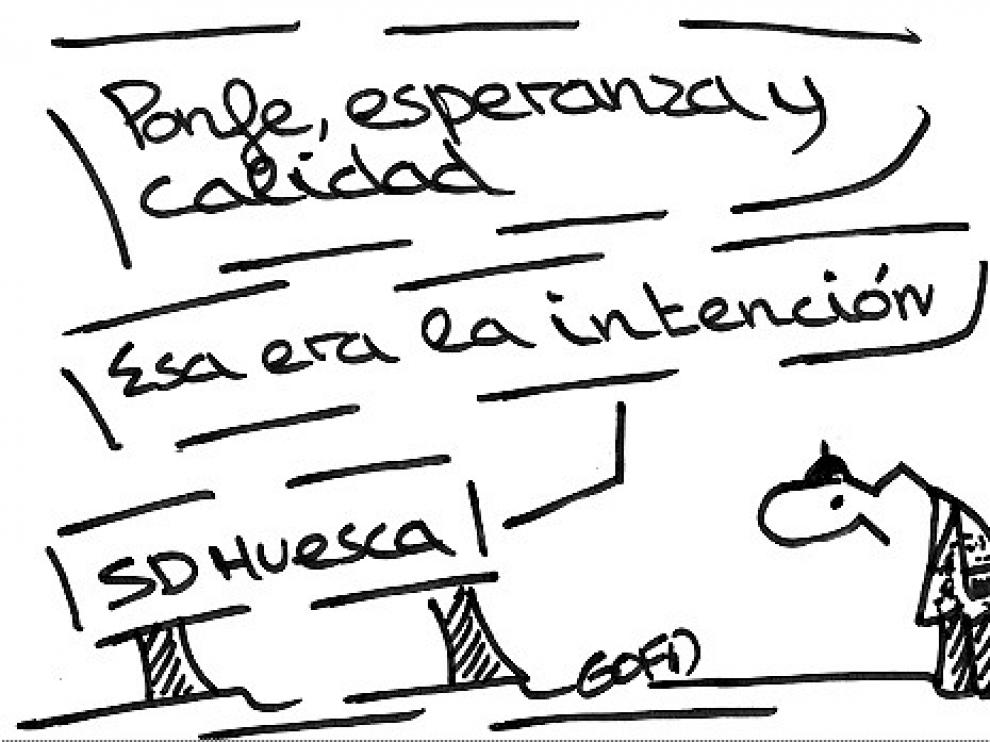 Ponfe, esperanza y
calidad
Esa era la intención
SD Huesca
GOFI)